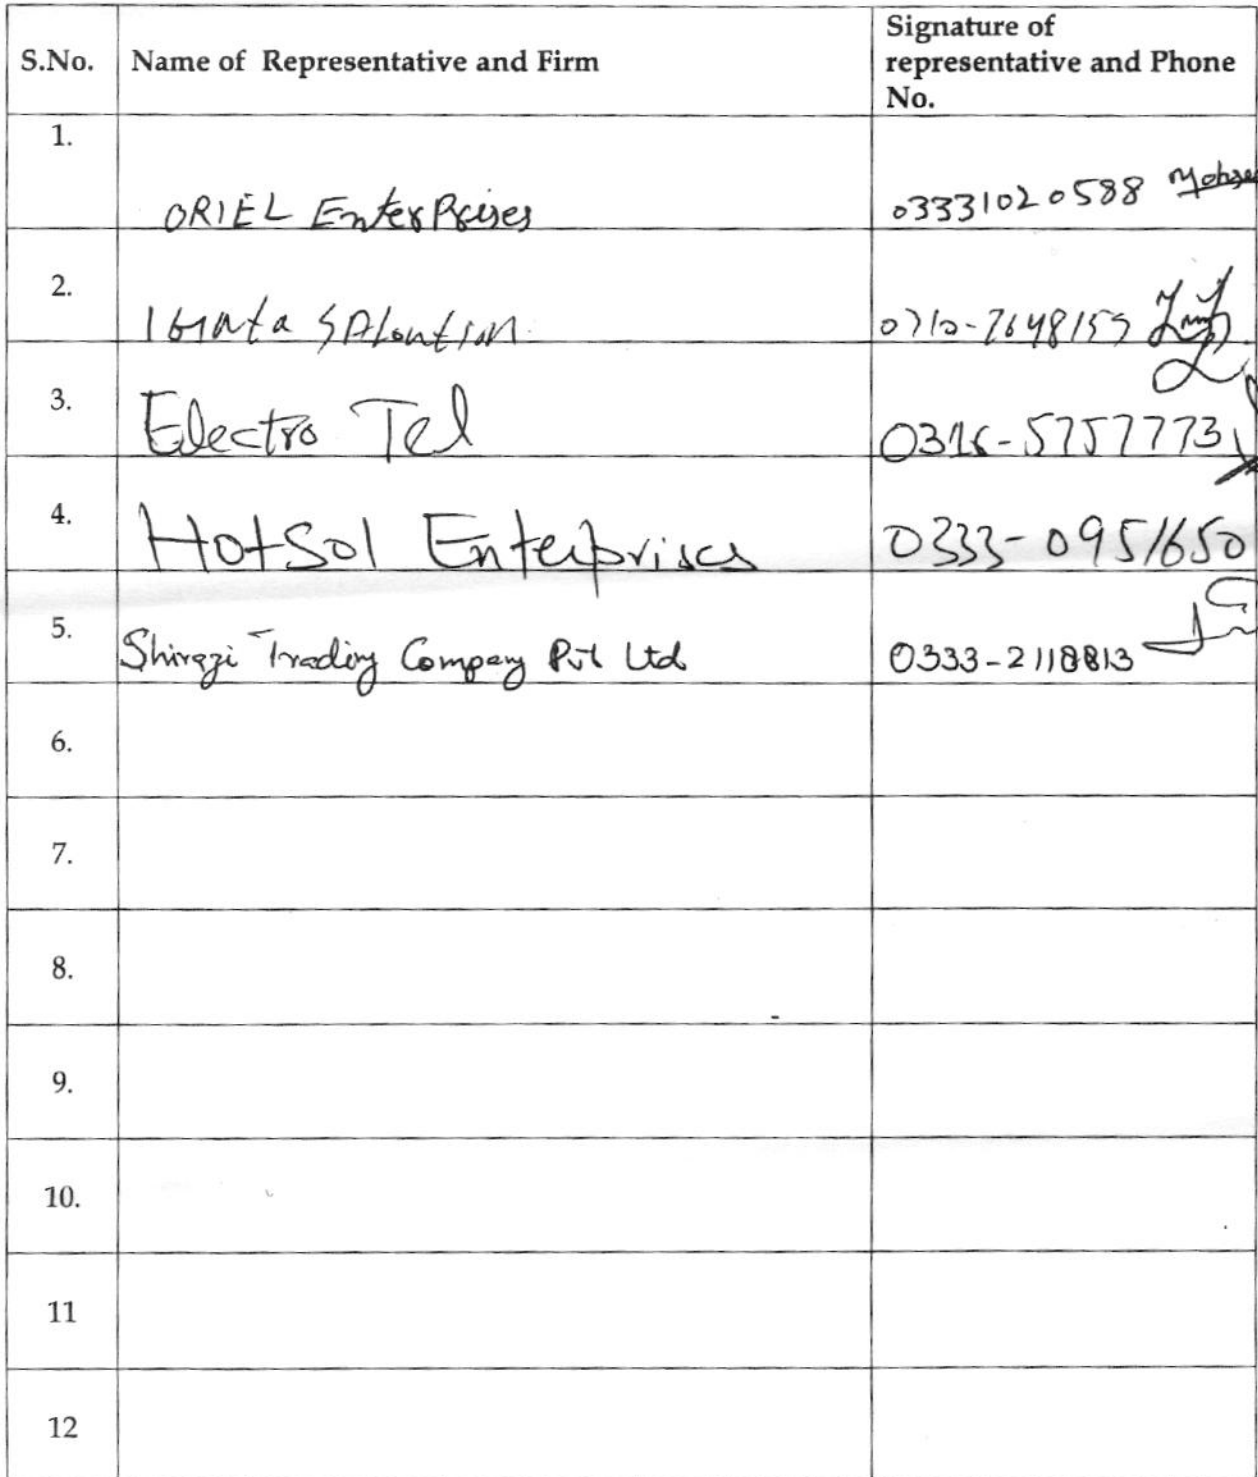 S.No. Name of Representative and Firm Signature of
representative and Phone
No.
1.
ORIEL EnterPrises 03331020588
2.
3.
Electro Tel 0316-5757773
4.
HotSol Enterprises 0333-0951650
5.
Shirazi Trading Company Pvt Ltd 0333-2118813
6.
7.
8.
9.
10.
11
12